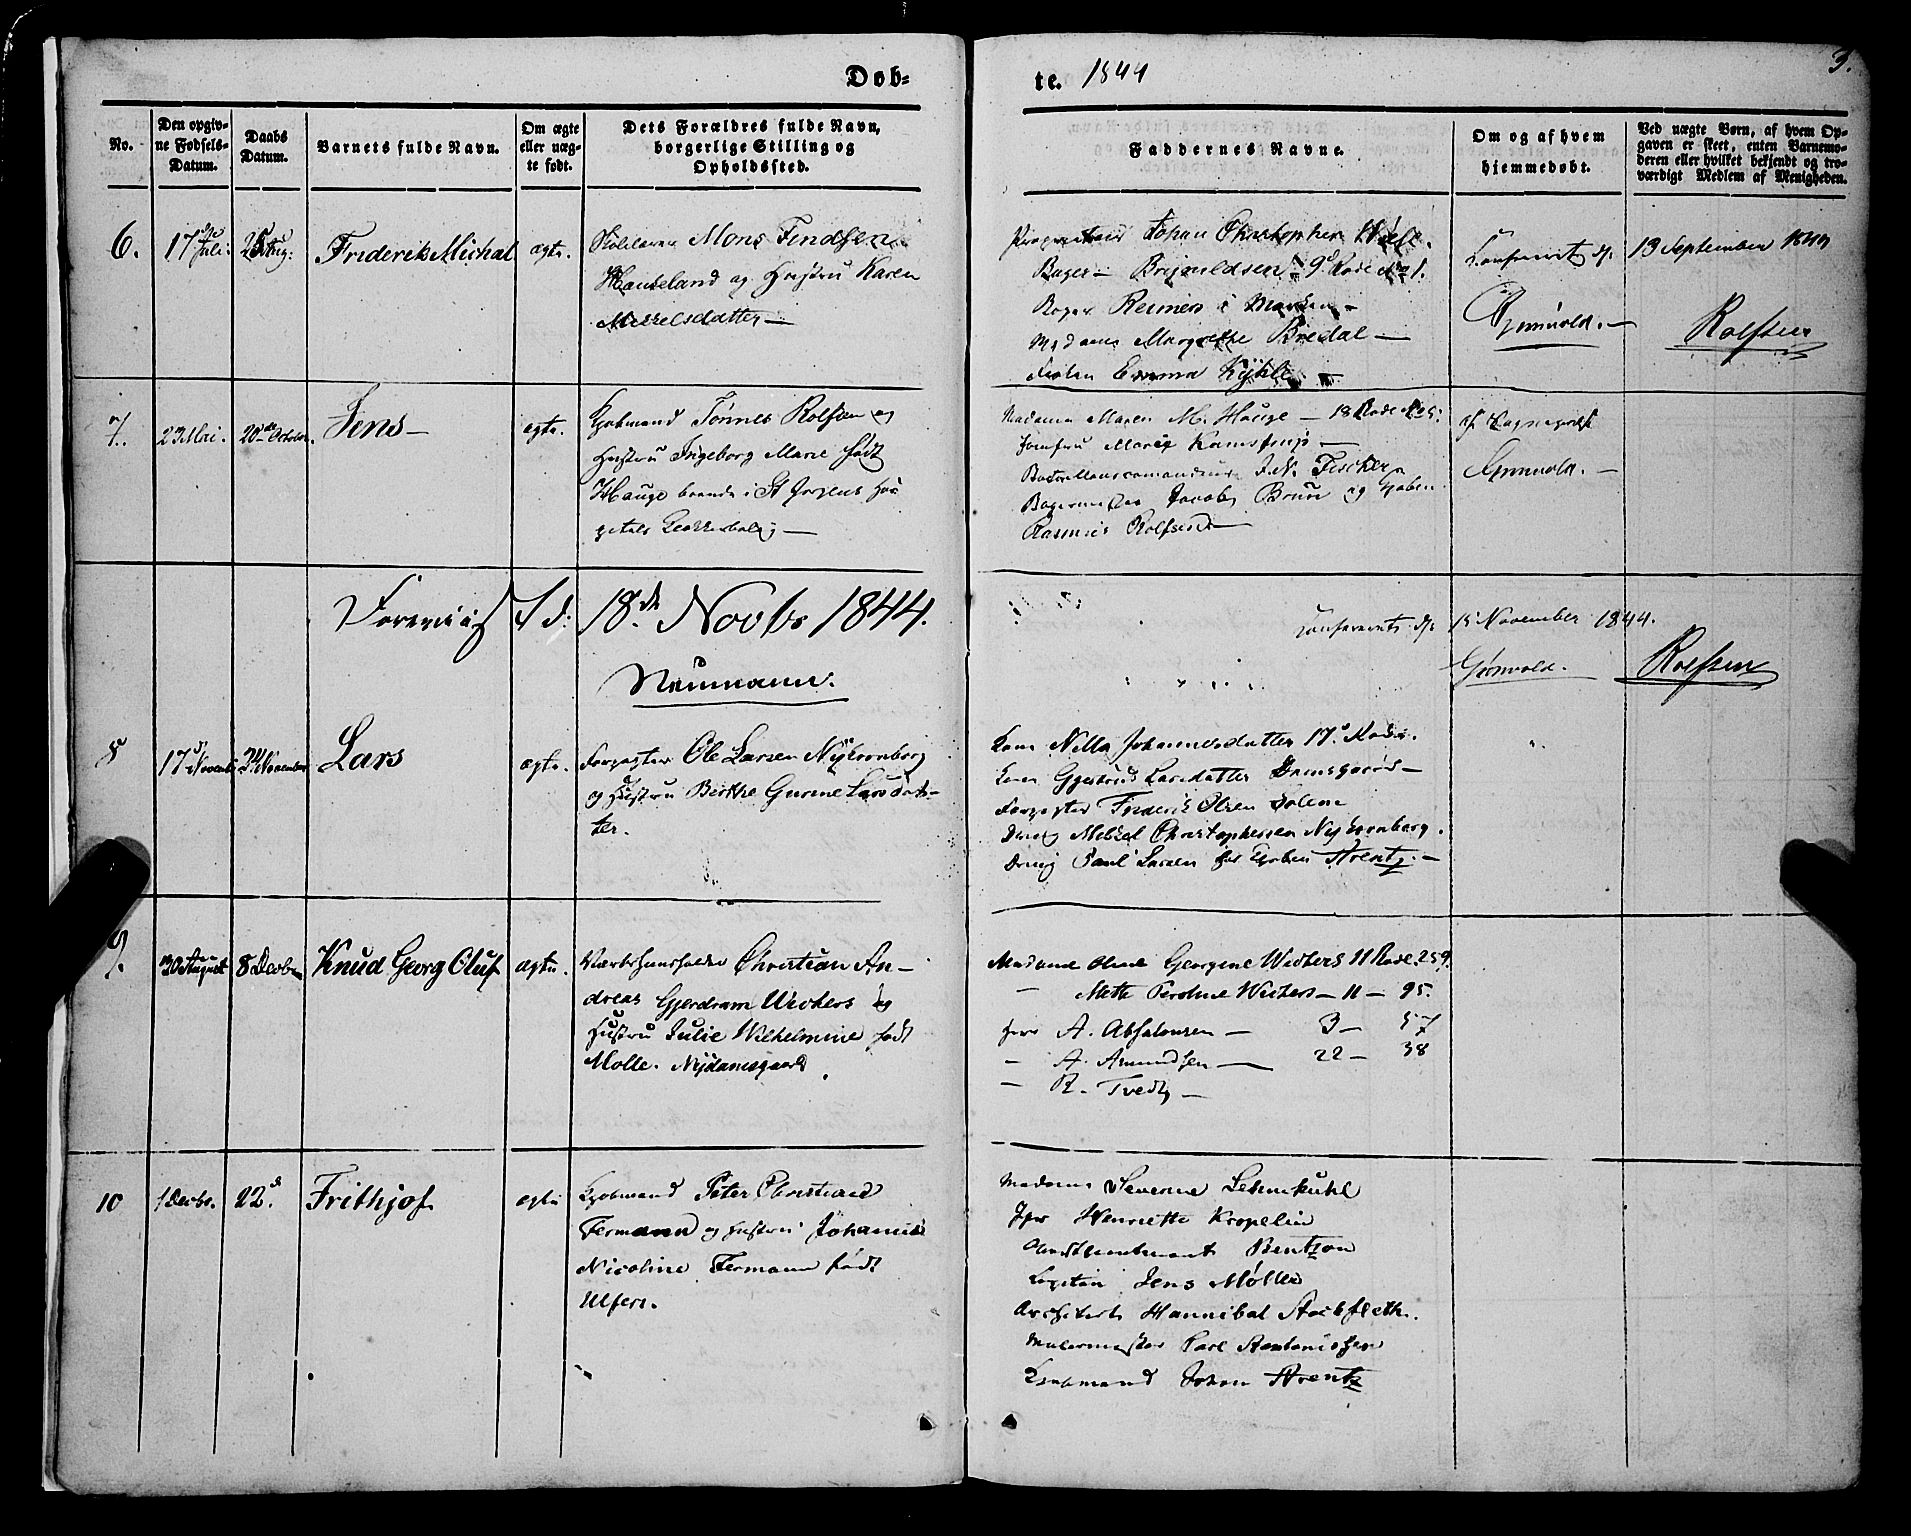 Døb=
te. 1844
3.
No.
Den opgiv-
ne Fødsels-
Datum.
Daabs
Datum.
Barnets fulde Navn.
Om ægte
eller uæg-
te født.
Dets Forældres fulde Navn,
borgerlige Stilling og
Opholdssted.
Faddernes Navne.
Om og af hvem
hjemmedøbt.
Ved uægte Børn, af hvem Op-
gaven er skeet, enten Barnemo-
deren eller hvilket bekjendt og tro-
værdigt Medlem af Menigheden.
6. 17 Juli 25 Aug: Friderik Michal ægte.
Mons Findsen
Haukeland og Hustru Karen
Mikkelsdatter —
Johan Christopher
Bager Brynildsen 9 Rode No 1.
Bager Reimers i Marken —
Madame Margrethe Bredal —
Emma
Confereret
Grønvold. —
13 September 1844
Rolfsen
7. 2 Mai. 20 October. Jens — ægte.
Kjøbmand Tønnes Rolfsen og
Hustru Ingeborg Marie født
Hauge boende i St Jørgens Hos
pitals
Madame Maren M. Hauge — 18 Rode
Jomfru Marie Kamstrup —
J. N. Fischer
Bagermester Jacob Bruun og Kjøbm
Rasmus Rolfsen —
Grønvold. —
Foreviist d: 18de Novbr 1844.
Neumann.
Confereret d: 15 November 1844.
Grønvold. Rolfsen
8 17 Novemb 24 November Lars ægte.
Forgagter Ole Larsen Nykronborg
og Hustru Berthe Gurine Larsdat-
ter.
Kone Nilla Johannesdatter 17 Rode.
Kone Gjertrud Larsdatter Damsgaard —
Forpagter Friderik Olsen Solem
Dreng Mikkel Christophersen Nykronborg.
Dreng Paul Larsen hos Kjøbm Arentz. —
9. 30 August 8 Decbr Knud Georg Oluf ægte.
Værtshuusholder Christian An-
dreas Gjerdrum Wichers og
Hustru Julie Wilhelmine født
Møller. Nydamsgaard.
Madame Georgine Wichers 11 Rode. 259.
— Mette Wichers — 11 — 95.
Herr A. Absalonsen — 3 — 57
— A. Amundsen — 22 — 38
— R. Tvedt —
10 1 Decbr. 22. Frithjof ægte
Kjøbmand Peter Christian
Fermann og Hustru Johanne
Nicoline Fermann født
Ulfers.
Madame Severine Lehmkuhl
Jfr Henriette Krøpelin
Bentzon
Capitain Jens Møller
Architect Hannibal Stockfleth.
Malermester Carl Antonissen
Kjøbmand Johan Arentz